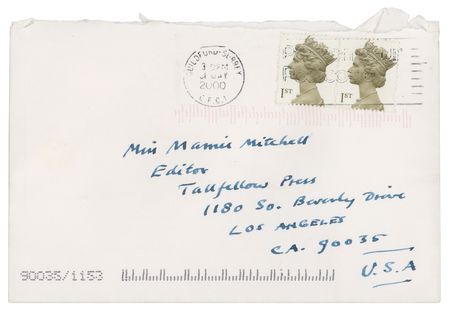 GUILDFORD-SURREY
2000
G.F.C.I
1ST 1ST
Miss Mamie Mitchell
Editor
Tallfellow Press
1180 So. Beverly Drive
LOS ANGELES
CA. 90035
U.S.A
90035/1153